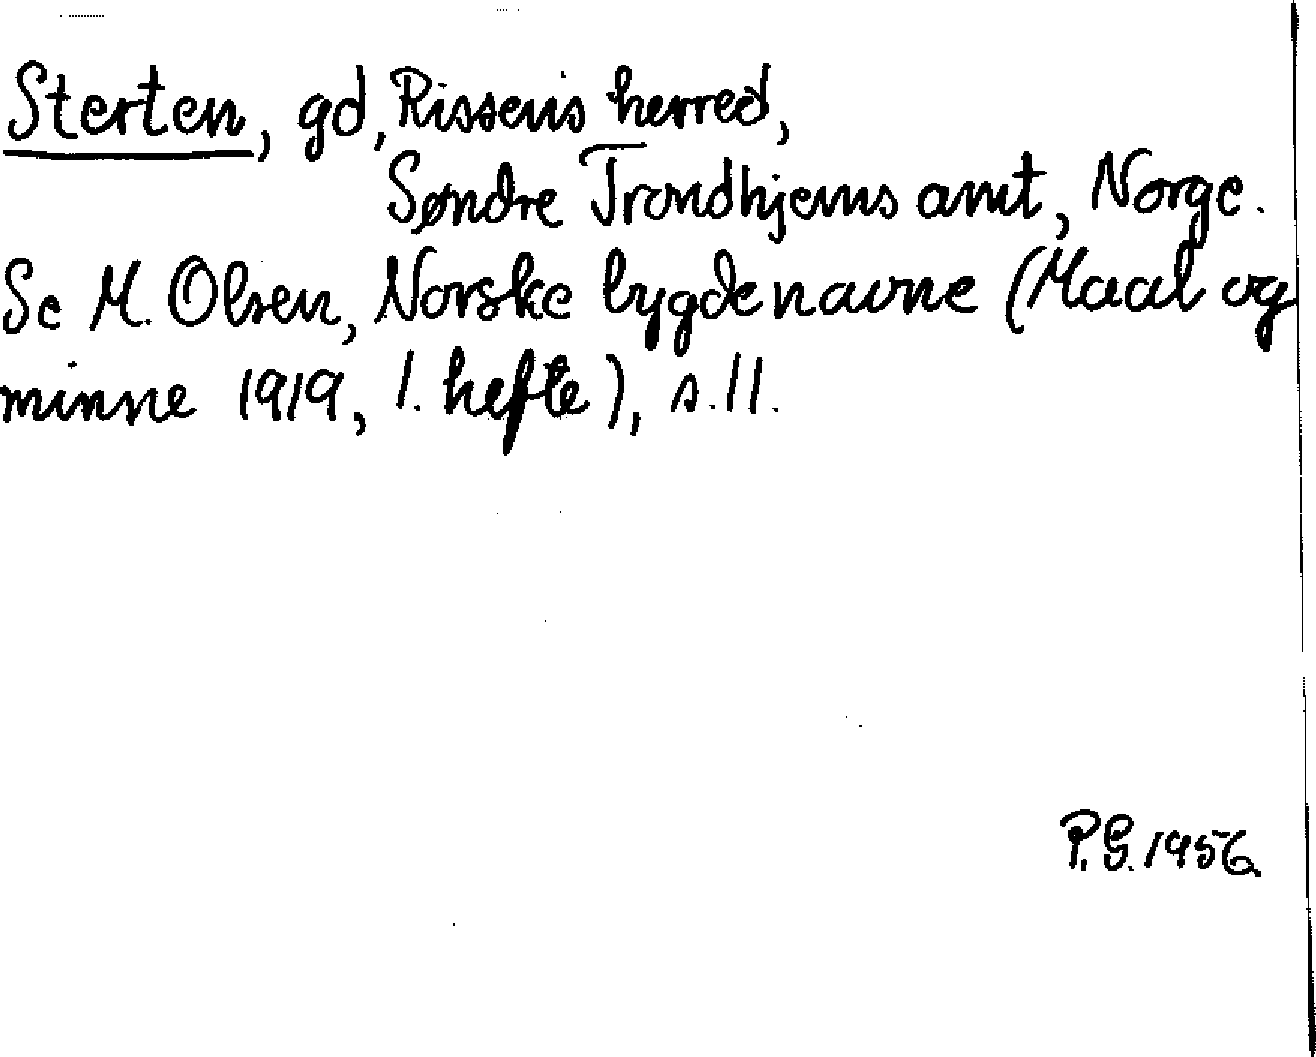 Sterten, gd, Rissens herred,
Søndre Trondhjems amt, Norge.
Se M. Olsen, Norske bygdenavne (Maal og
minne 1919, 1. hefte), s. 11.
P.G. 1956.